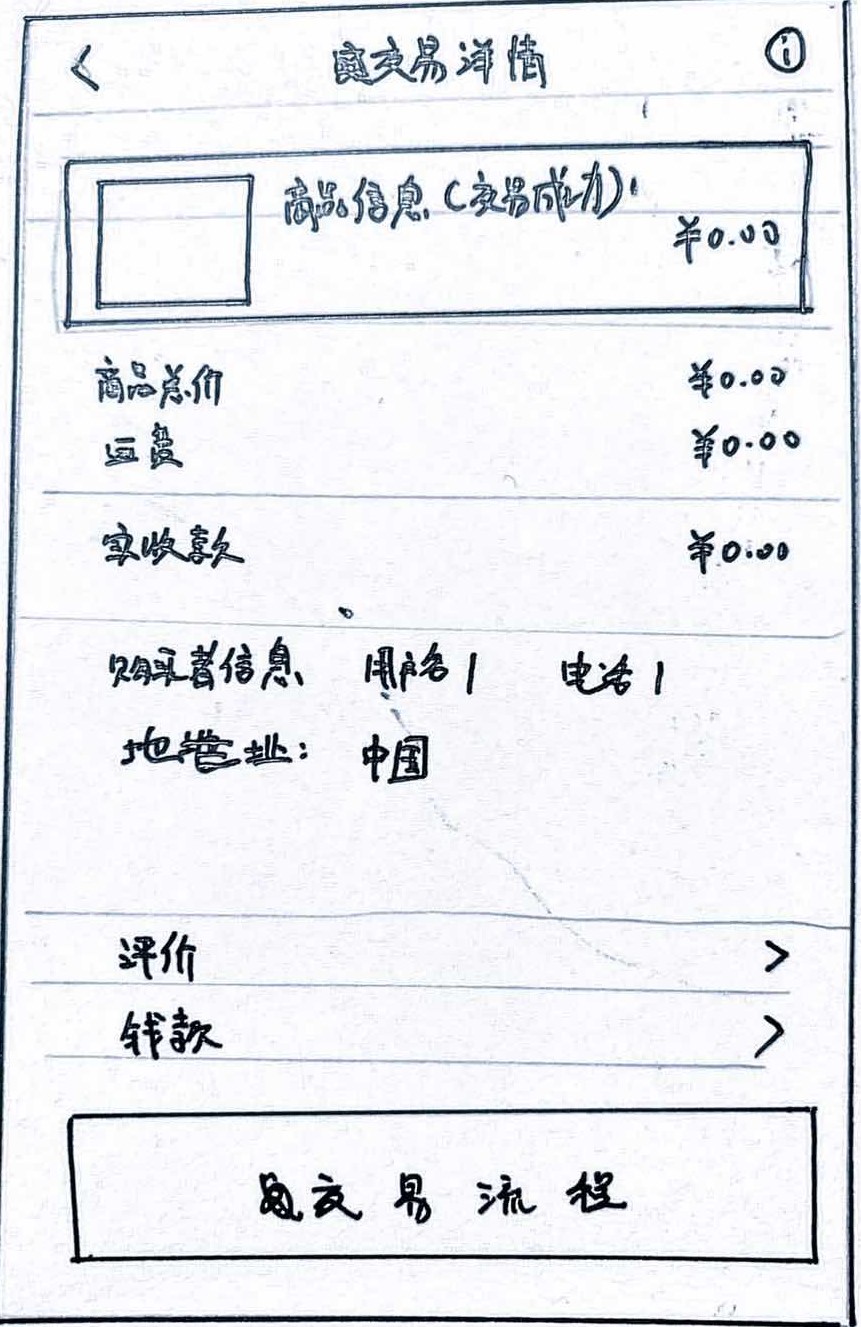 交易详情
商品信息(交易成功)
¥0.00
商品总价 ¥0.00
运费 ¥0.00
实收款 ¥0.00
购买者信息 用户名1 电话1
地址: 中国
评价 >
钱款 >
交易流程